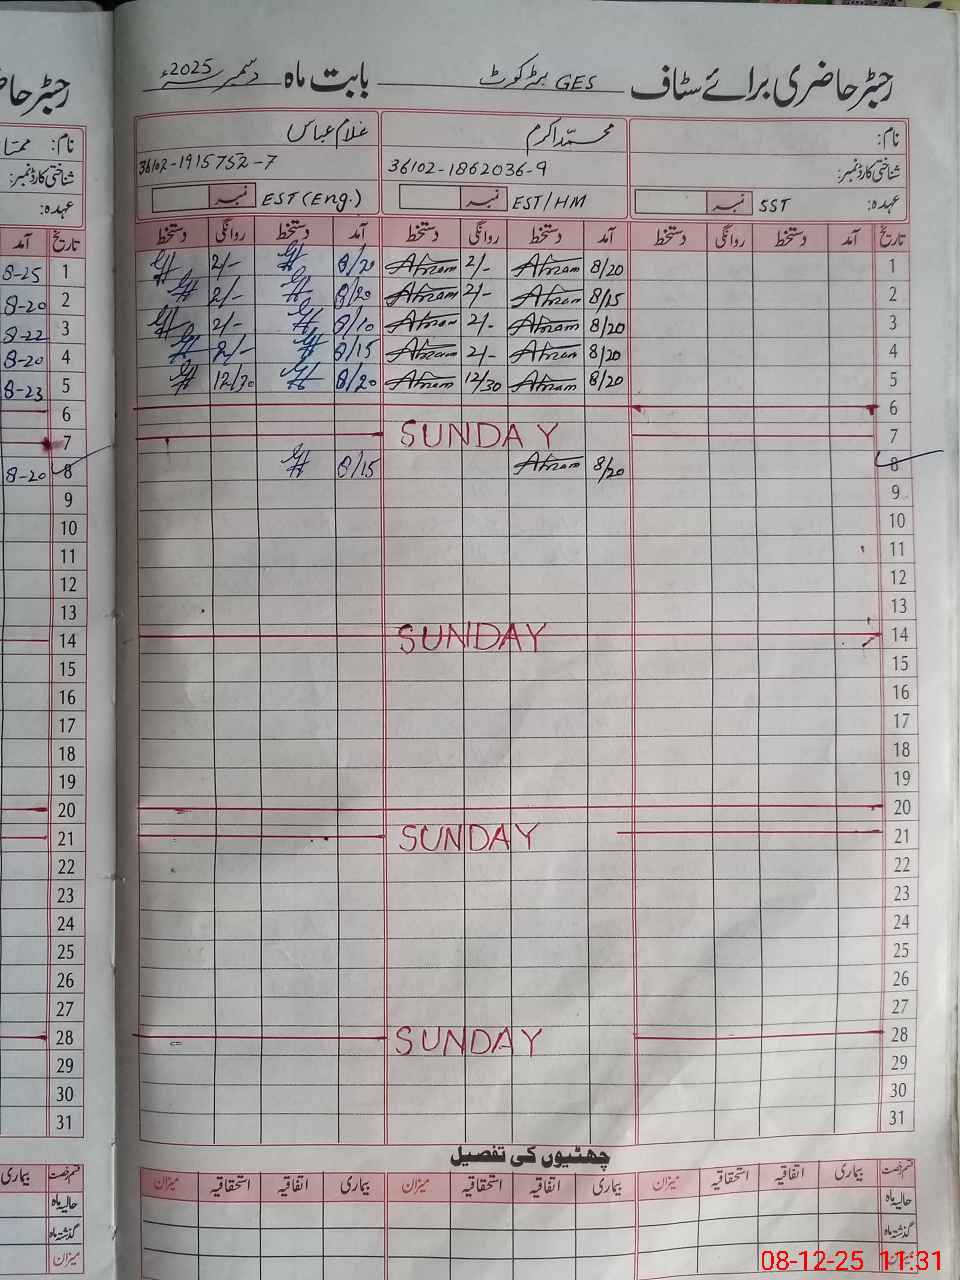 رجسٹر حاضری برائے سٹاف GES ہڑکوٹ بابت ماہ دسمبر 2025ء
رجسٹر حا
نام: محمد اکرم غلام عباس
شناختی کارڈ نمبر: 36102-1862036-9 36102-1915752-7
عہدہ: SST نمبر EST/HM نمبر EST (Eng.) نمبر
نام:
شناختی کارڈ نمبر:
عہدہ:
تاریخ آمد دستخط روانگی دستخط آمد دستخط روانگی دستخط آمد دستخط روانگی دستخط
تاریخ آمد
1 8/20 Akram 2/- Akram 8/20 2/-
2 8/15 Akram 2/- Akram 8/20 2/-
3 8/20 Akram 2/- Akram 8/10 2/-
4 8/20 Akram 2/- Akram 8/15 2/-
5 8/20 Akram 12/30 Akram 8/20 12/30
6
7 SUNDAY
8 8/20 Akram 8/15
9
10
11
12
13
14 SUNDAY
15
16
17
18
19
20
21 SUNDAY
22
23
24
25
26
27
28 SUNDAY
29
30
31
1 8-25
2 8-20
3 8-22
4 8-20
5 8-23
6
7
8 8-20
9
10
11
12
13
14
15
16
17
18
19
20
21
22
23
24
25
26
27
28
29
30
31
چھٹیوں کی تفصیل
قسم رخصت بیماری اتفاقیہ استحقاقیہ میزان بیماری اتفاقیہ استحقاقیہ میزان بیماری اتفاقیہ استحقاقیہ میزان
حالیہ ماہ
گذشتہ ماہ
میزان
قسم رخصت بیماری
حالیہ ماہ
گذشتہ ماہ
میزان
08-12-25 11:31